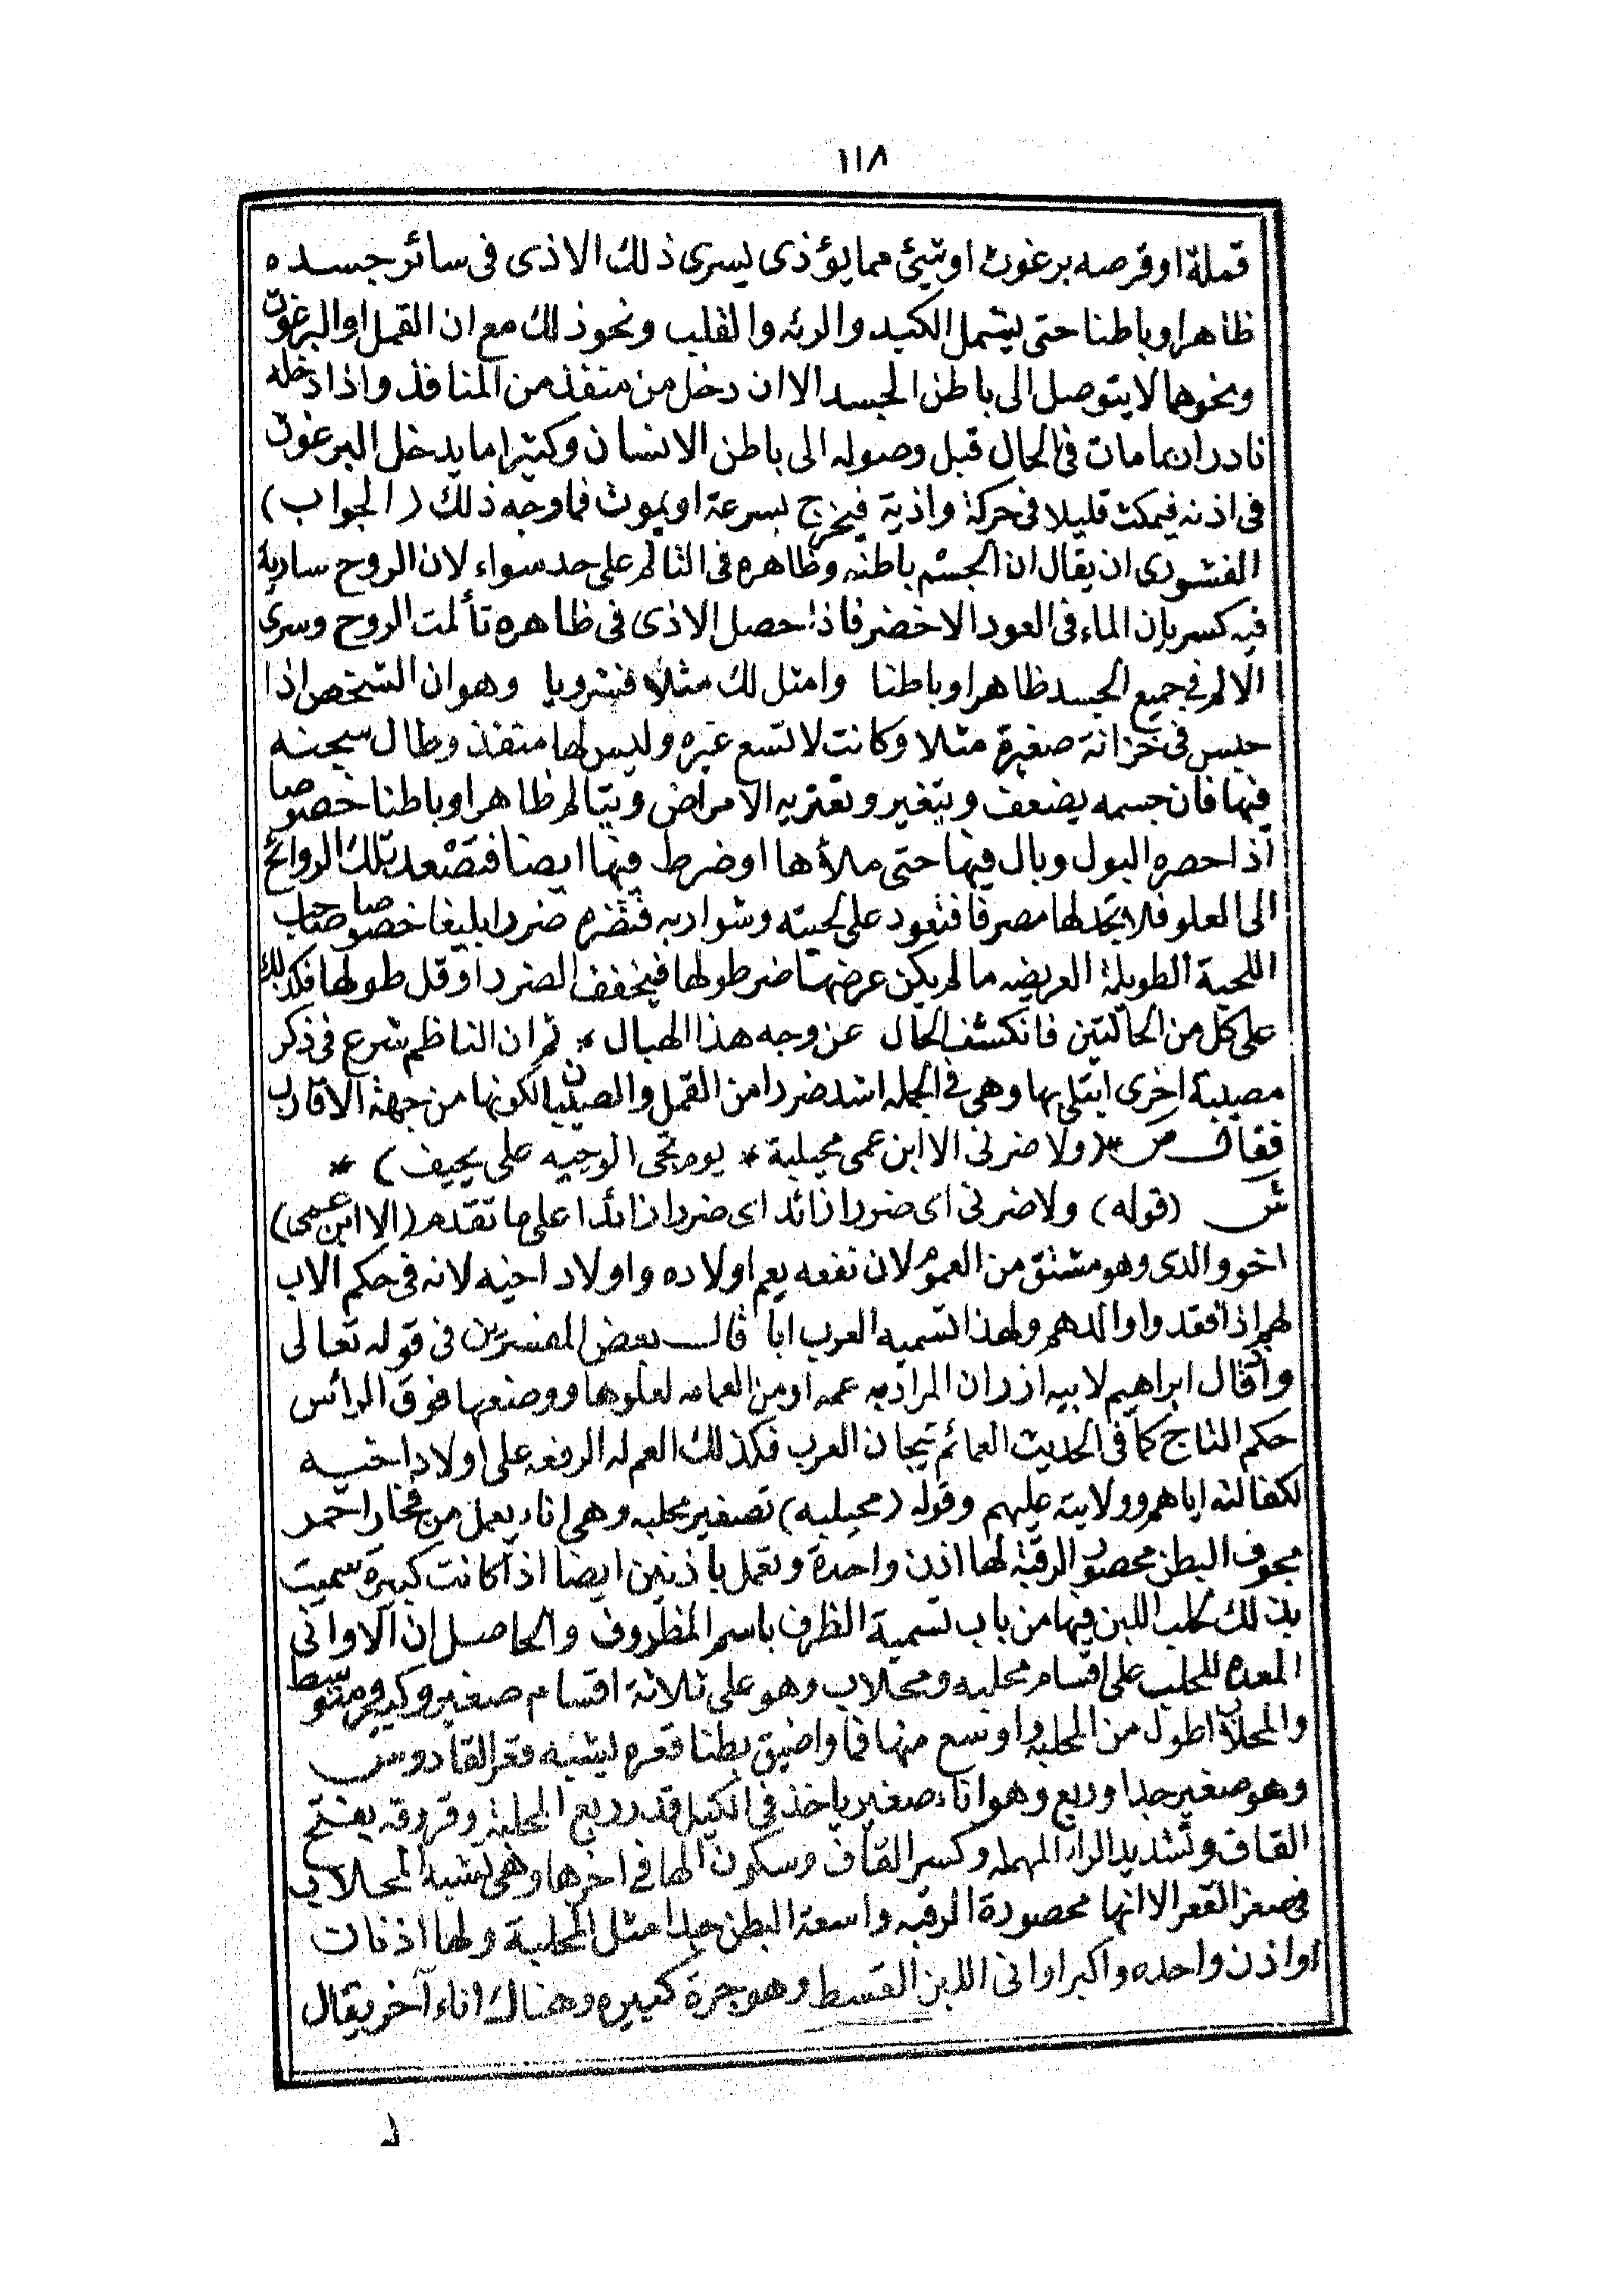 ١١٨
قملة او قرصه برغوث او شئ مما يؤذى يسرى ذلك الاذى فى سائر جسده
ظاهرا وباطنا حتى يشمل الكبد والرئه والقلب ونحو ذلك مع ان القمل او البرغوث
ونحوهما لا يتوصل الى باطن الجسد الا ان دخل من منفذ من المنافذ واذا دخله
نادرا ربما مات فى الحال قبل وصوله الى باطن الانسان وكثيرا ما يدخل البرغوث
فى اذنه فيمكث قليلا فى حركة واذية فيخرج بسرعة او يموت فما وجه ذلك (الجواب)
الفشورى ان يقال ان الجسم باطنه وظاهره فى التالم على حد سواء لان الروح سارية
فيه كسريان الماء فى العود الاخضر فاذا حصل الاذى فى ظاهره تألمت الروح وسرى
الالم فى جميع الجسد ظاهرا وباطنا وامثل لك مثلا فشرويا وهو ان الشخص اذا
حبس فى خزانة صغيرة مثلا وكانت لا تسع غيره وليس لها منفذ وطال سجنه
فيها فان جسمه يضعف ويتغير وتعتريه الامراض ويتالم ظاهرا وباطنا خصوصا
اذا حصره البول وبال فيها حتى ملأها او ضرط فيها ايضا فتصعد تلك الروائح
الى العلو فلا تجد لها مصرفا فتعود على لحيته وشواربه فتضره ضررا بليغا خصوصا صاحب
اللحية الطويلة العريضه ما لم يكن عرضها ضر طولها فيخفف الضرر او قل طولها فكذلك
على كل من الحالتين فانكشف الحال عن وجه هذا الهبال * ثم ان الناظم شرع فى ذكر
مصيبة اخرى ابتلى بها وهى فى الجمله اشد ضررا من القمل والصيبان لكونها من جهة الاقارب
فقال ص *(ولا ضرنى الا ابن عمى محيلبة * يوم تجى الوجبه على يحيف) *
ش (قوله) ولا ضرنى اى ضررا زائد اى ضررا زائدا على ما تقدم (الا ابن عمى)
اخو والدى وهو مشتق من العموم لان نفعه يعم اولاده واولاد اخيه لانه فى حكم الاب
لهم اذا فقدوا والدهم ولهذا تسميه العرب ابا قال بعض المفسرين فى قوله تعالى
واذ قال ابراهيم لابيه ازر ان المراد به عمه او من العمامه لعلوها ووضعها فوق الرائس
حكم التاج كما فى الحديث العمائم تيجان العرب فكذلك العم له الرفعه على اولاد اخيه
لكفالته اياهم وولايته عليهم وقوله (محيلبه) تصغير محلبه وهى اناء يعمل من فخار احمر
مجوف البطن محصور الرقبة لها اذن واحدة وتعمل باذنين ايضا اذا كانت كبيرة سميت
بذلك لحلب اللبن فيها من باب تسمية الظرف باسم المظروف والحاصل ان الاوانى
المعده للحلب على اقسام محلبه ومحلاب وهو على ثلاثة اقسام صغير وكبير ومتوسط
والمحلاب اطول من المحلبه واوسع منها فما واضيق بطنا قعره يشبه قعر القادوس
وهو صغير جدا وربع وهو اناء صغير ياخذ فى الكيل قدر ربع المحلبة وقروقه بفتح
القاف وتشديد الراء المهمله وكسر القاف وسكون الها فى اخرها وهى تشبه المحلاب
فى صغر القعر الا انها محصورة الرقبه واسعة البطن جدا مثل المحلبة ولها اذنان
او اذن واحده واكبر اوانى اللبن القسط وهو جرة كبيره وهناك اناء آخر يقال
له